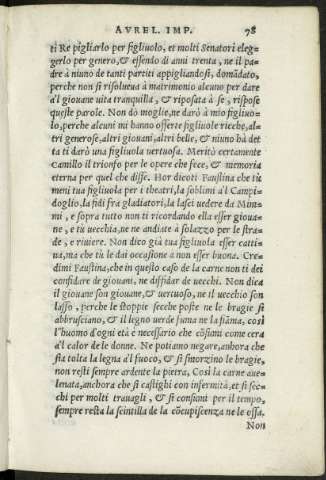 AVREL. IMP. 78
ti Re pigliarlo per figliuolo, et molti Senatori eleg-
gerlo per genero, & essendo di anni trenta, ne il pa-
dre à niuno de tanti partiti appigliandosi, domãdato,
perche non si risolueua à matrimonio alcuno per dare
à'l giouane uita tranquilla, & riposata à se, rispose
queste parole. Non dò moglie, ne darò à mio figliuo-
lo, perche alcuni mi hanno offerte figliuole ricche, al-
tri generose, altri giouani, altri belle, & niuno hà det
to ti darò una figliuola uertuosa. Meritò certamente
Camillo il trionfo per le opere che fece, & memoria
eterna per quel che disse. Hor dicoti Faustina che tu
meni tua figliuola per i theatri, la soblimi al Campi-
doglio, la fidi fra gladiatori, la lasci uedere da Mim-
mi, e sopra tutto non ti ricordando ella esser gioua-
ne, e tu uecchia, ne ne andiate à solazzo per le stra-
de, e riuiere. Non dico già tua figliuola esser catti-
ua, ma che tu le dai occasione a non esser buona. Cre
dimi Faustina, che in questo caso de la carne non ti dei
confidare de giouani, ne diffidar de uecchi. Non dica
il giouane son giouane, & uertuoso, ne il uecchio son
lasso, perche le stoppie secche poste ne le bragie si
abbrusciano, & il legno uerde fuma ne la fiãma, così
l'huomo d'ogni età è necessario che cõsimi come cera
à'l calor de le donne. Ne potiamo negare, anhora che
sia tolta la legna à'l fuoco, & si smorzino le bragie,
non resti sempre ardente la pietra, Così la carne aue-
lenata, anchora che si castighi con infermità, et si sec-
chi per molti trauagli, & si consimi per il tempo,
sempre resta la scintilla de la cõcupiscenza ne le ossa.
Non